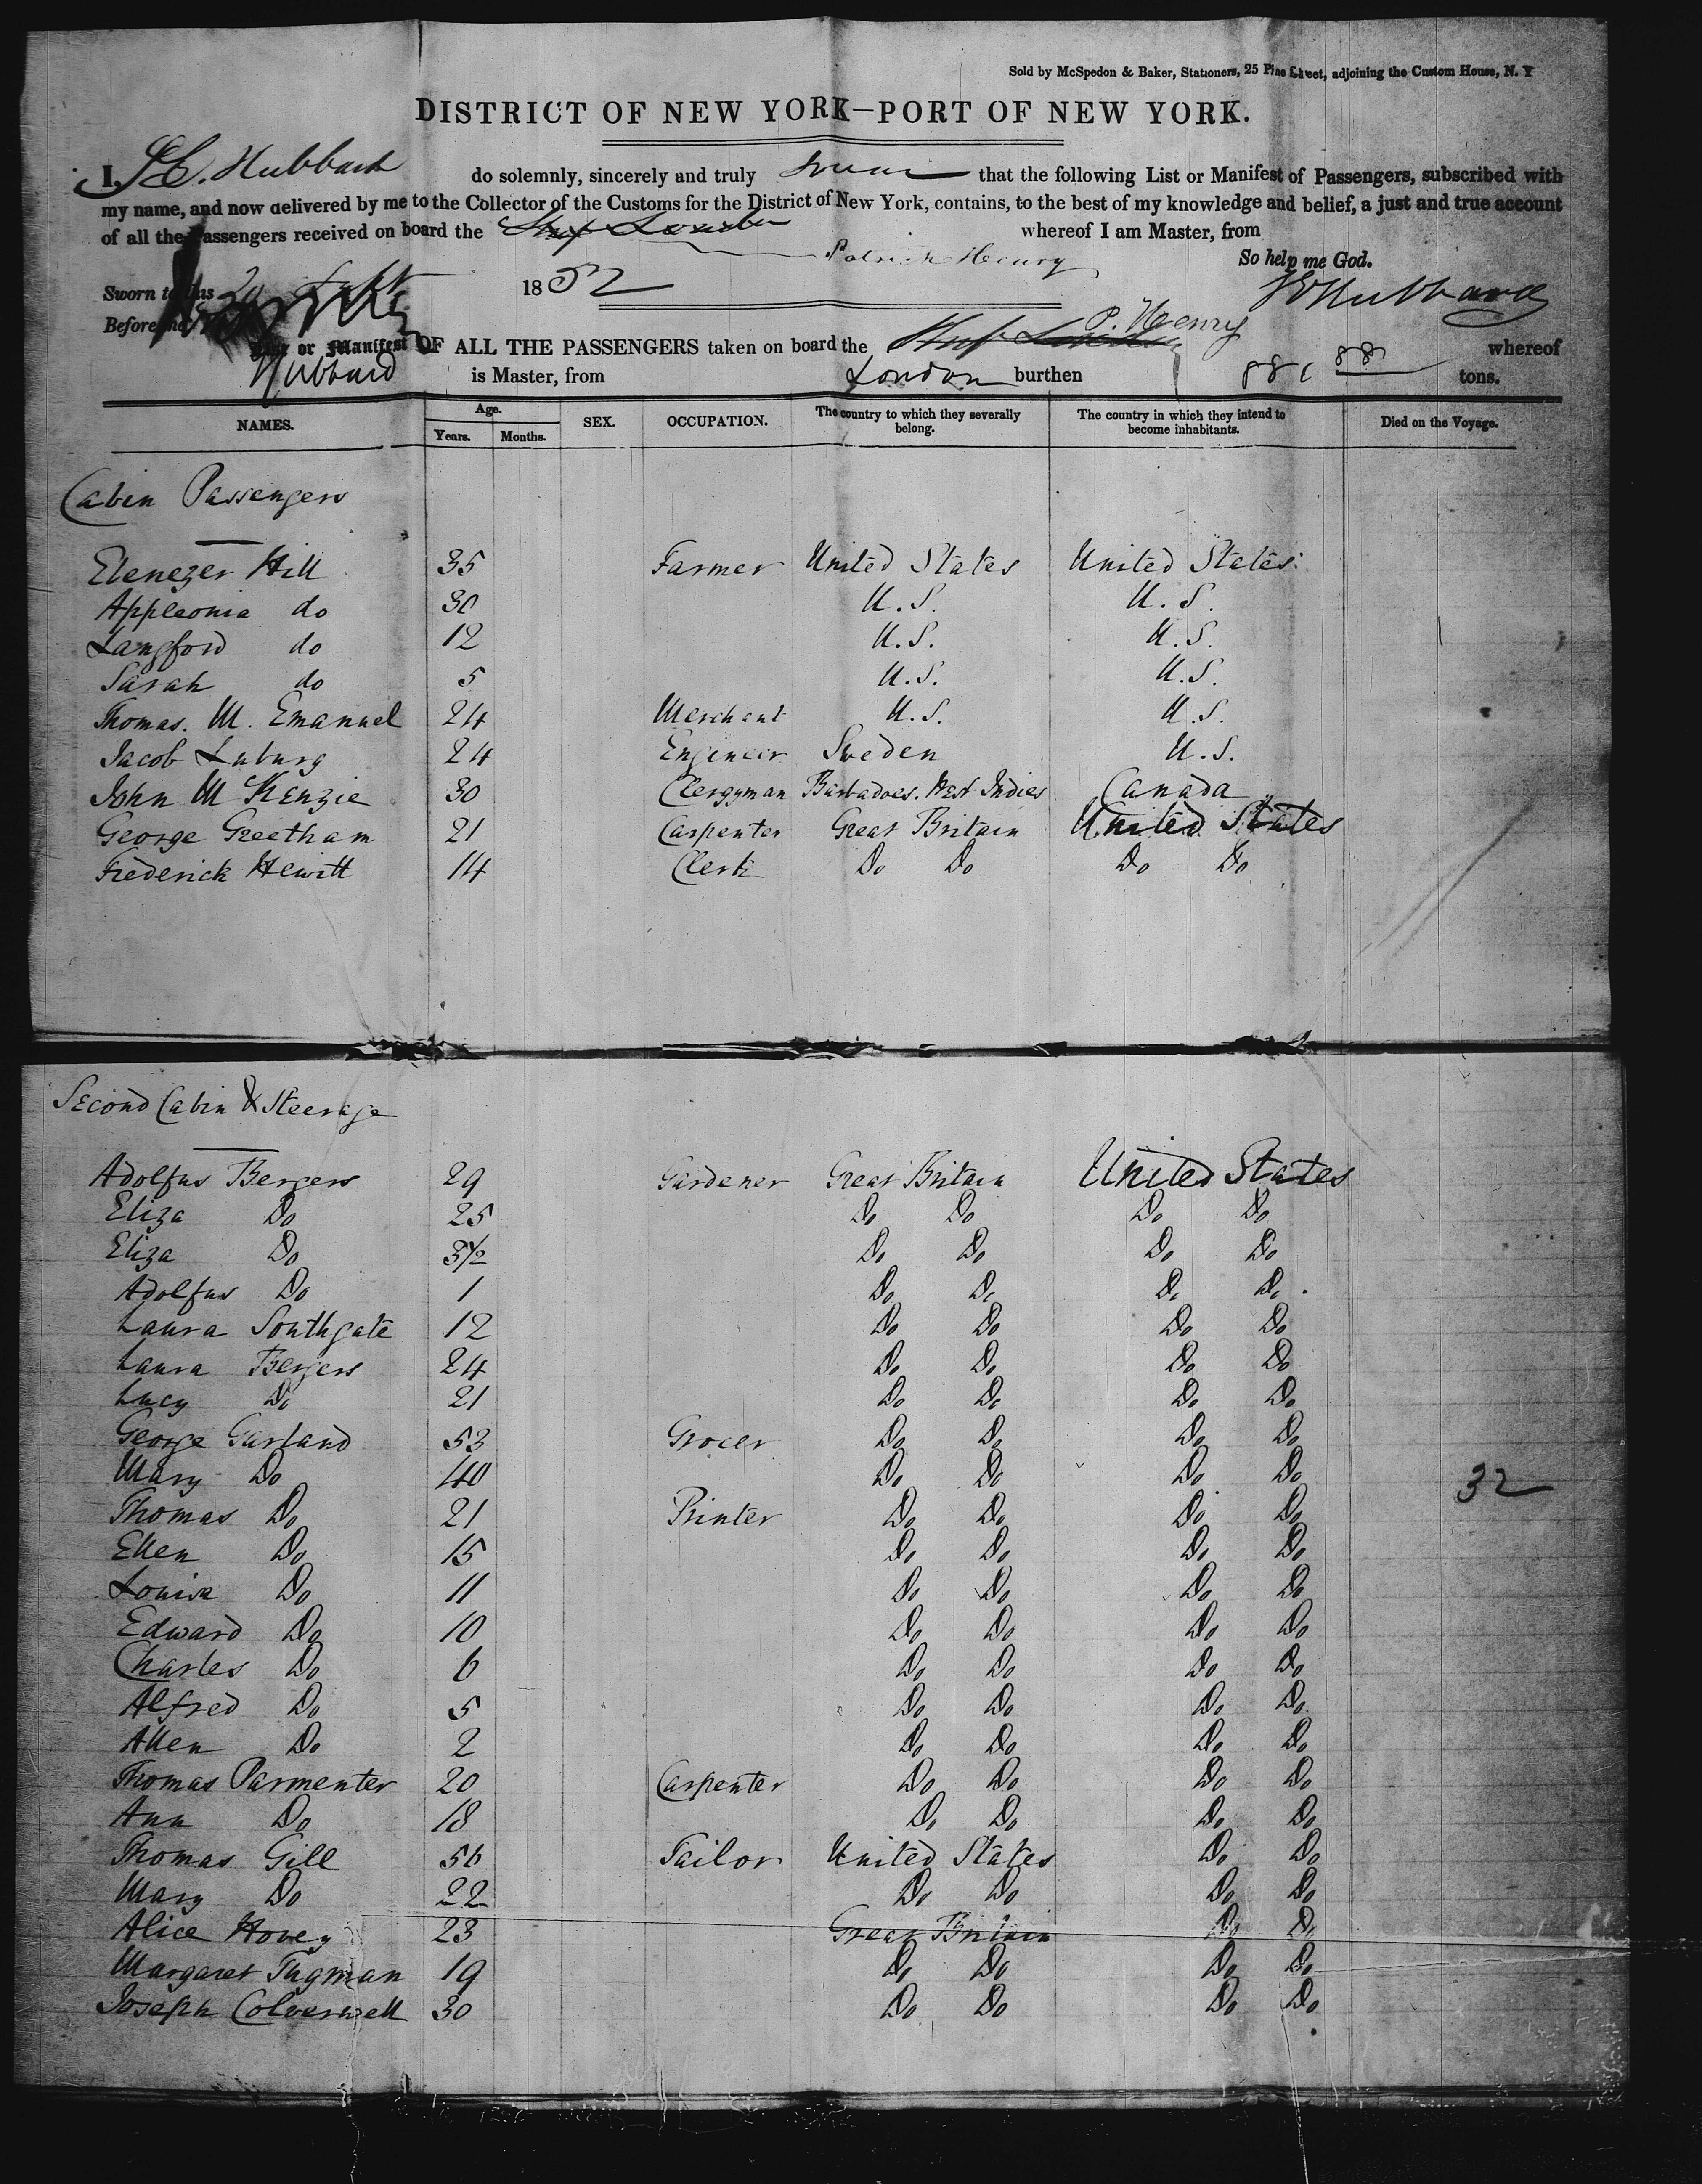 Sold by McSpedon & Baker, Stationers, 25 Pine Street, adjoining the Custom House, N. Y
DISTRICT OF NEW YORK—PORT OF NEW YORK.
I, Hubbard do solemnly, sincerely and truly swear that the following List or Manifest of Passengers, subscribed with
my name, and now delivered by me to the Collector of the Customs for the District of New York, contains, to the best of my knowledge and belief, a just and true account
of all the Passengers received on board the Ship London whereof I am Master, from
Patrick Henry So help me God.
Sworn to this 20 Sept 1852 Hubbard
Before me
List or Manifest OF ALL THE PASSENGERS taken on board the Ship London P. Henry whereof
Hubbard is Master, from London burthen 881 88 tons.
NAMES. Age. Years. Months. SEX. OCCUPATION. The country to which they severally belong. The country in which they intend to become inhabitants. Died on the Voyage.
Cabin Passengers
Ebenezer Hill 35 Farmer United States United States
Appleonia do 30 U.S. U.S.
Langford do 12 U.S. U.S.
Sarah do 5 U.S. U.S.
Thomas. M. Emanuel 24 Merchant U.S. U.S.
Jacob Luburg 24 Engineer Sweden U.S.
John M Kenzie 30 Clergyman Barbadoes. West Indies Canada
George Greetham 21 Carpenter Great Britain United States
Frederick Hewitt 14 Clerk Do Do Do Do
Second Cabin & Steerage
Adolfus Bergers 29 Gardener Great Britain United States
Eliza Do 25 Do Do Do Do
Eliza Do 3½ Do Do Do Do
Adolfus Do 1 Do Do Do Do
Laura Southgate 12 Do Do Do Do
Laura Bergers 24 Do Do Do Do
Lucy Do 21 Do Do Do Do
George Garland 53 Grocer Do Do Do Do
Mary Do 40 Do Do Do Do 32
Thomas Do 21 Printer Do Do Do Do
Ellen Do 15 Do Do Do Do
Louisa Do 11 Do Do Do Do
Edward Do 10 Do Do Do Do
Charles Do 6 Do Do Do Do
Alfred Do 5 Do Do Do Do
Allen Do 2 Do Do Do Do
Thomas Parmenter 20 Carpenter Do Do Do Do
Ann Do 18 Do Do Do Do
Thomas Gill 56 Tailor United States Do Do
Mary Do 22 Do Do Do Do
Alice Hovey 23 Great Britain Do Do
Margaret Tugman 19 Do Do Do Do
Joseph Colverwell 30 Do Do Do Do